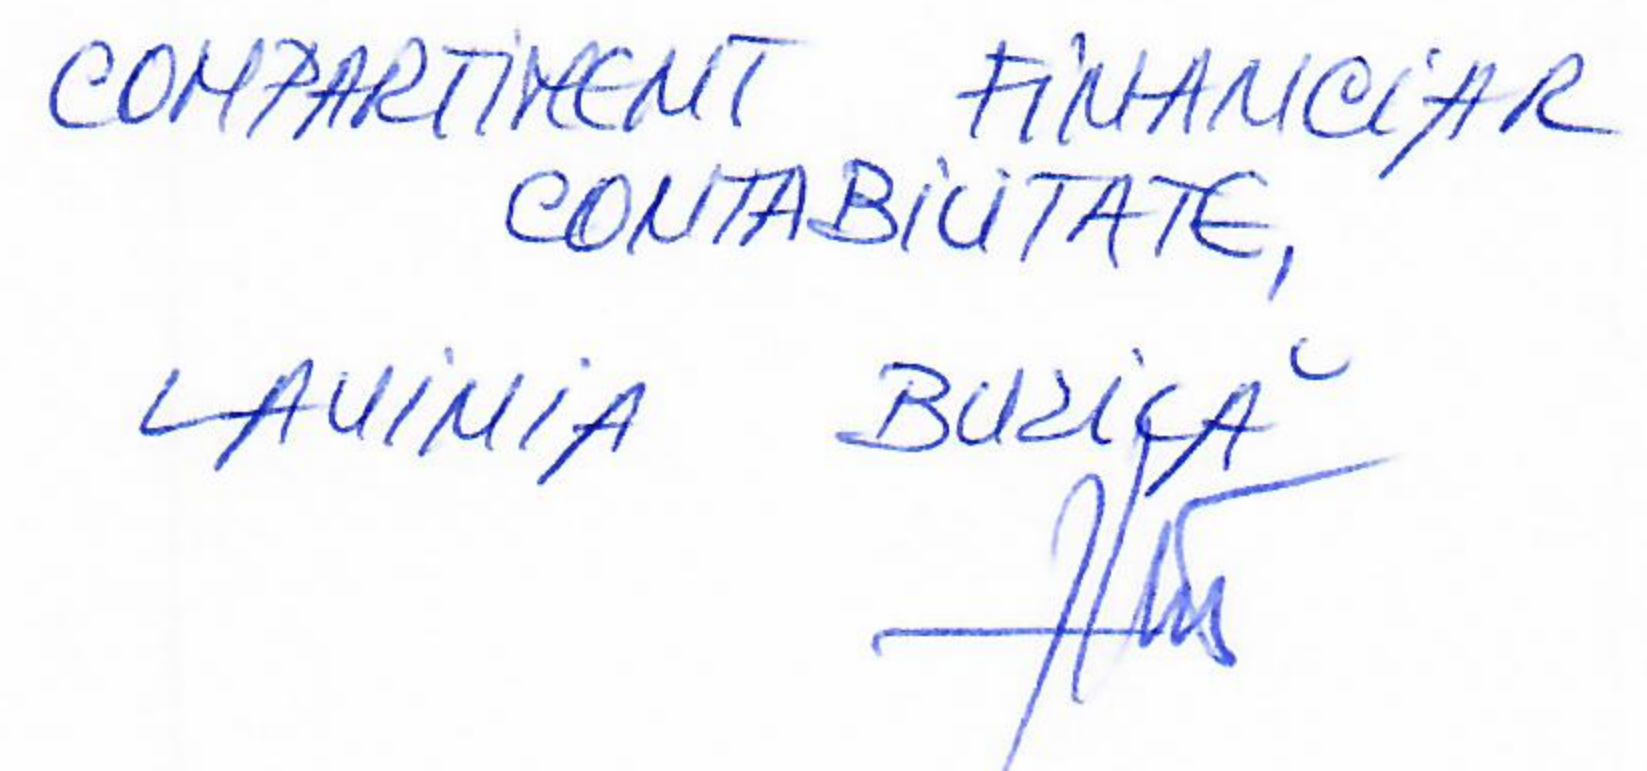 COMPARTIMENT FINANCIAR
CONTABILITATE,
LAVINIA BUZICĂ